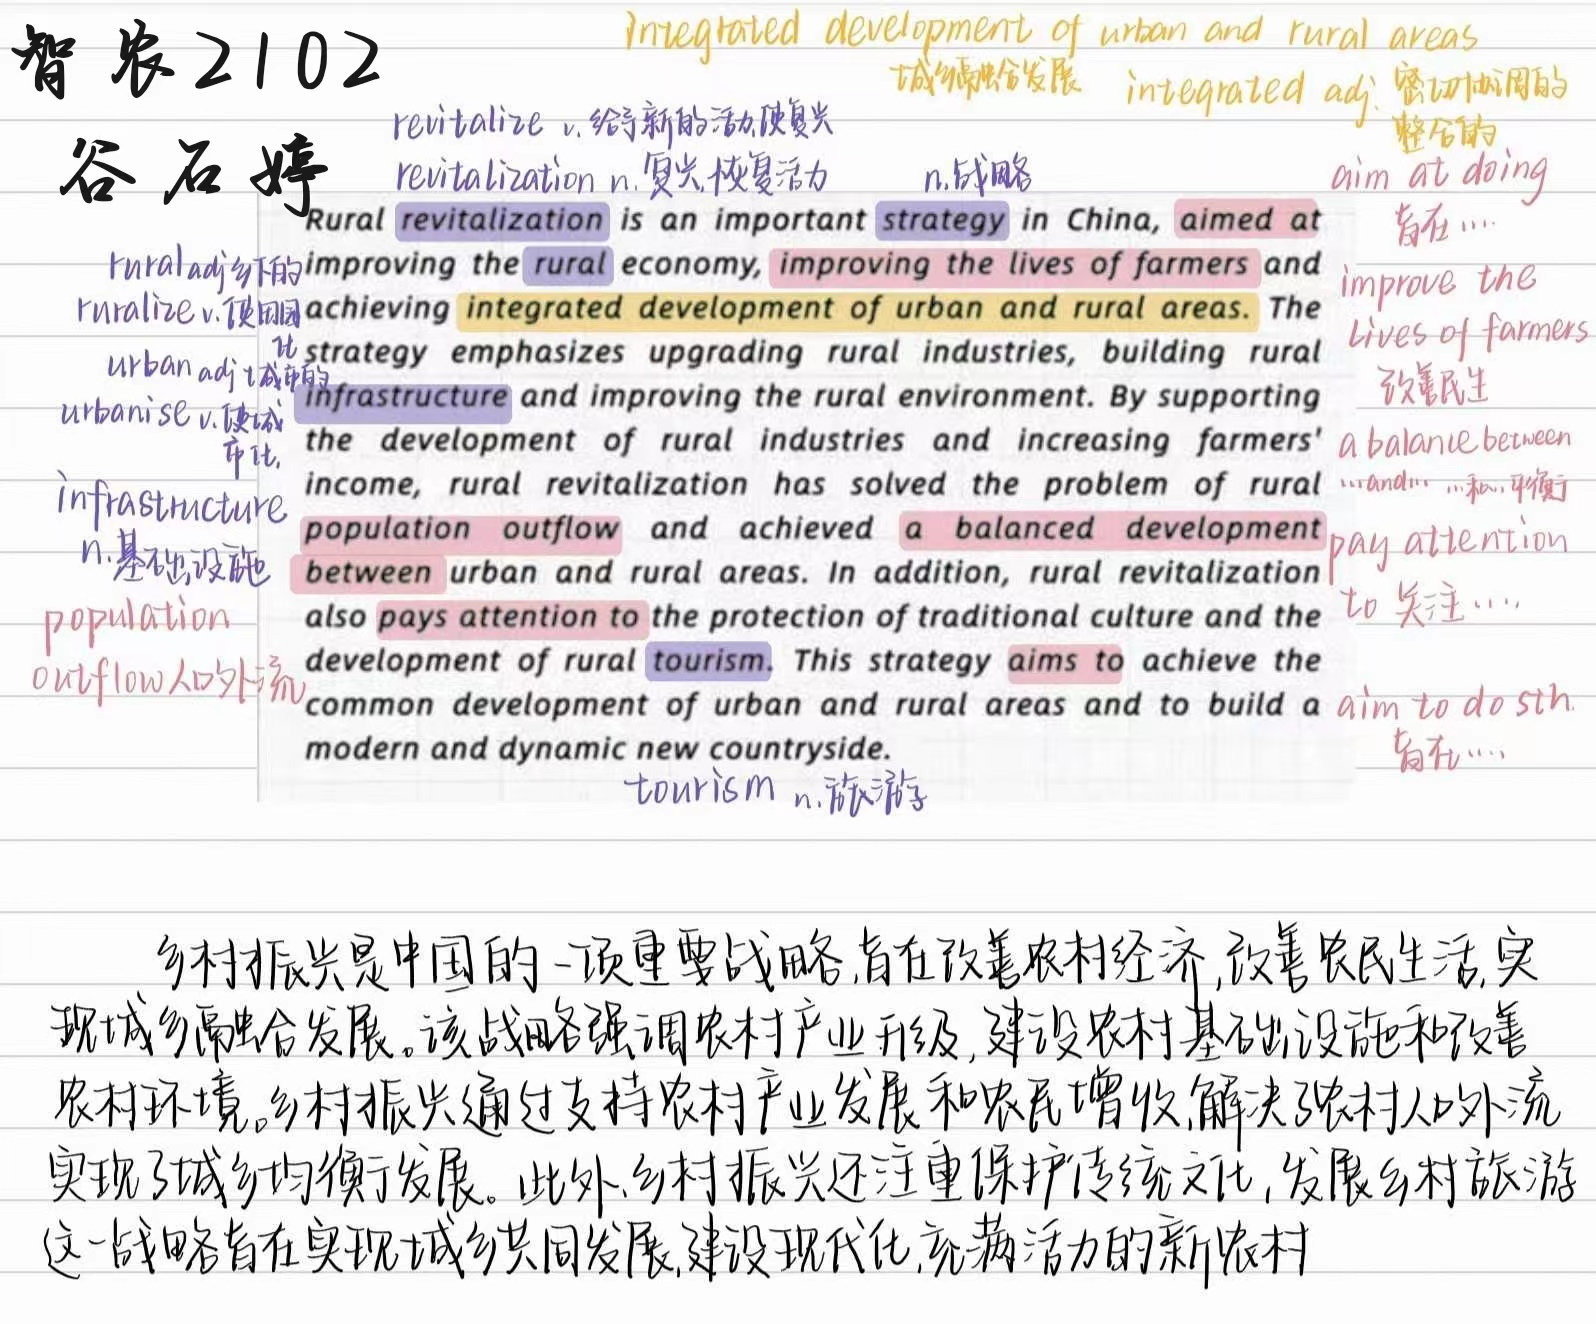 智农2102
谷石婷
integrated development of urban and rural areas
城乡融合发展
integrated adj. 密切协调的
整合的
revitalize v. 给予新的活力,使复兴
revitalization n. 复兴,恢复活力
n.战略
aim at doing
旨在....
Rural revitalization is an important strategy in China, aimed at
improving the rural economy, improving the lives of farmers and
achieving integrated development of urban and rural areas. The
strategy emphasizes upgrading rural industries, building rural
infrastructure and improving the rural environment. By supporting
the development of rural industries and increasing farmers'
income, rural revitalization has solved the problem of rural
population outflow and achieved a balanced development
between urban and rural areas. In addition, rural revitalization
also pays attention to the protection of traditional culture and the
development of rural tourism. This strategy aims to achieve the
common development of urban and rural areas and to build a
modern and dynamic new countryside.
rural adj 乡下的
ruralize v. 使田园
化
urban adj 城市的
urbanise v. 使城
市化.
infrastructure
n.基础设施
population
outflow 人口外流
improve the
lives of farmers
改善民生
a balance between
...and... ...和...平衡
pay attention
to 关注....
aim to do sth.
旨在....
tourism n.旅游
乡村振兴是中国的一项重要战略,旨在改善农村经济,改善农民生活,实
现城乡融合发展。该战略强调农村产业升级,建设农村基础设施和改善
农村环境。乡村振兴通过支持农村产业发展和农民增收,解决了农村人口外流
实现了城乡均衡发展。此外,乡村振兴还注重保护传统文化,发展乡村旅游
这一战略旨在实现城乡共同发展,建设现代化,充满活力的新农村